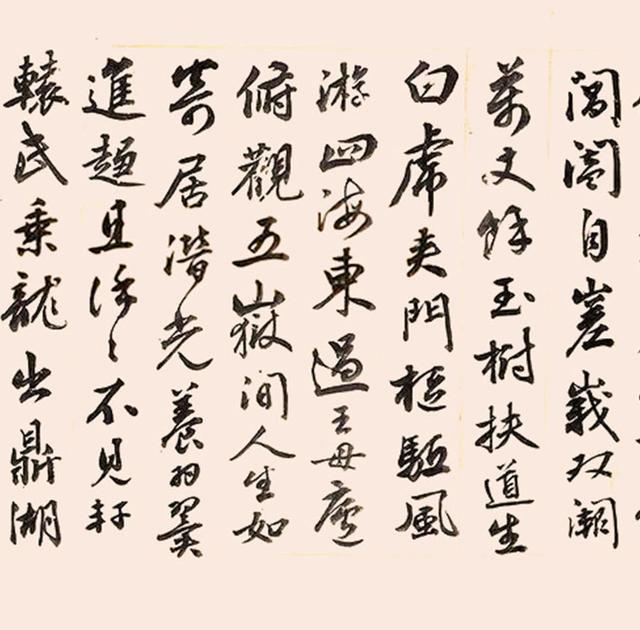 閶闔自嵳峩双闕
萬丈餘玉樹扶道生
白虎夾門樞驅風
游四海東過王母廬
俯觀五嶽間人生如
寄居潛光養羽翼
進趨且徐〻不見軒
轅氏乘龍出鼎湖